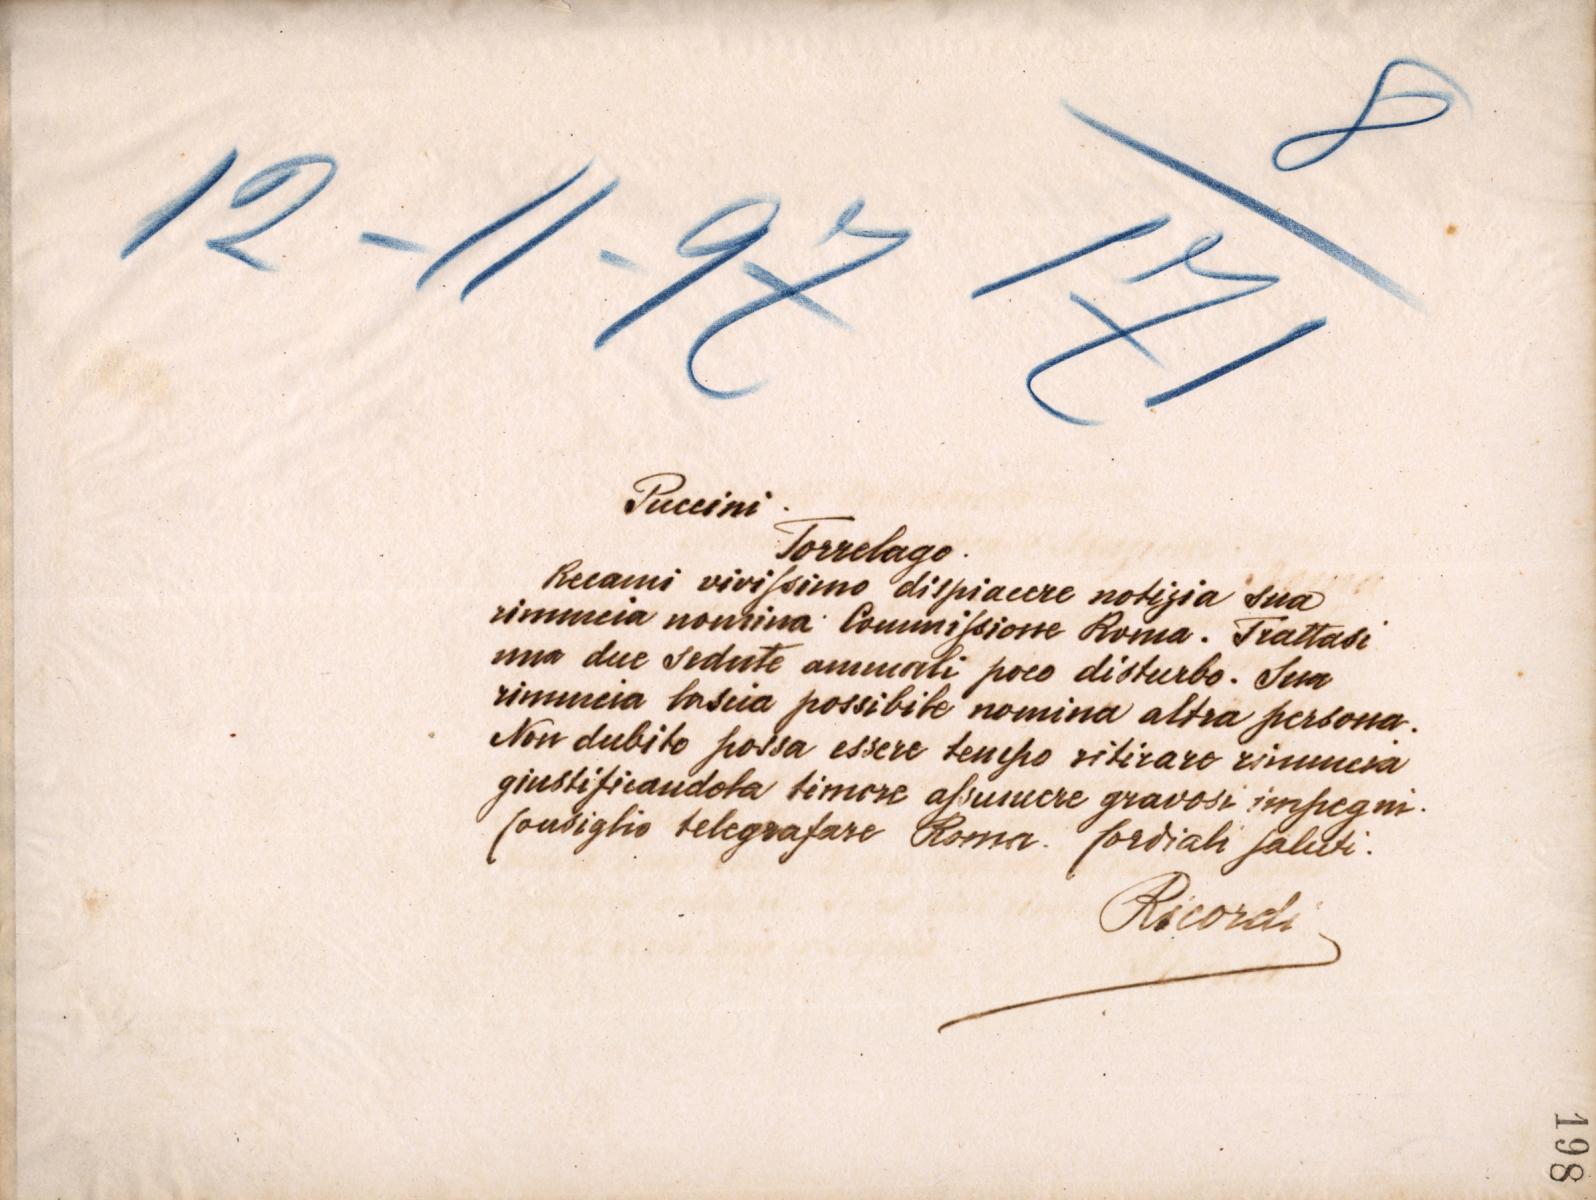 12-11-97
8
171
Puccini.
Torrelago.
Recami vivissimo dispiacere notizia sua
rinuncia nomina Commissione Roma. Trattasi
una due sedute annuali poco disturbo. Sua
rinuncia lascia possibile nomina altra persona.
Non dubito possa essere tempo ritirare rinuncia
giustificandola timore assumere gravosi impegni.
Consiglio telegrafare Roma. Cordiali saluti.
Ricordi
198